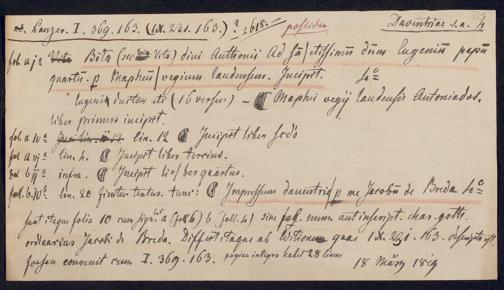 Panzer. I. 369. 163. (IX. 221. 163.)? 2618. possideo Daventriae s. a. 4
fol a j a Vita Bita (sic Vita) divi Anthonii Ad sanctissimum dum Eugeniū papā
quartū. p Mapheū | vegium laudensem. Incipit. 4o
Eugeni ductor etc (16 versus) – ¶ Maphei vegij laudensis Antoniados.
liber primus incipit.
fol a iv a lin. 12 ¶ Incipit liber sedō
fol a vj a lin. 4. ¶ Incipit liber tercius.
fol b ij a infra. ¶ Incipit liber quartus.
fol. b. iv a lin. 20 finitur textus. tunc: ¶ Impressum daventrie | p me Jacobū de Breda. 4o
sunt itaque folia 10 cum sign. a (fol 6) b (foll. 4) sine fol. num. aut inscript. char. goth.
ordinarius Jacobi de Breda. Differt itaque ab editione quae IX. 221. 163. descripta est,
forsan convenit cum I. 369. 163. pagina integra habet 28 lineas 18 März 1819